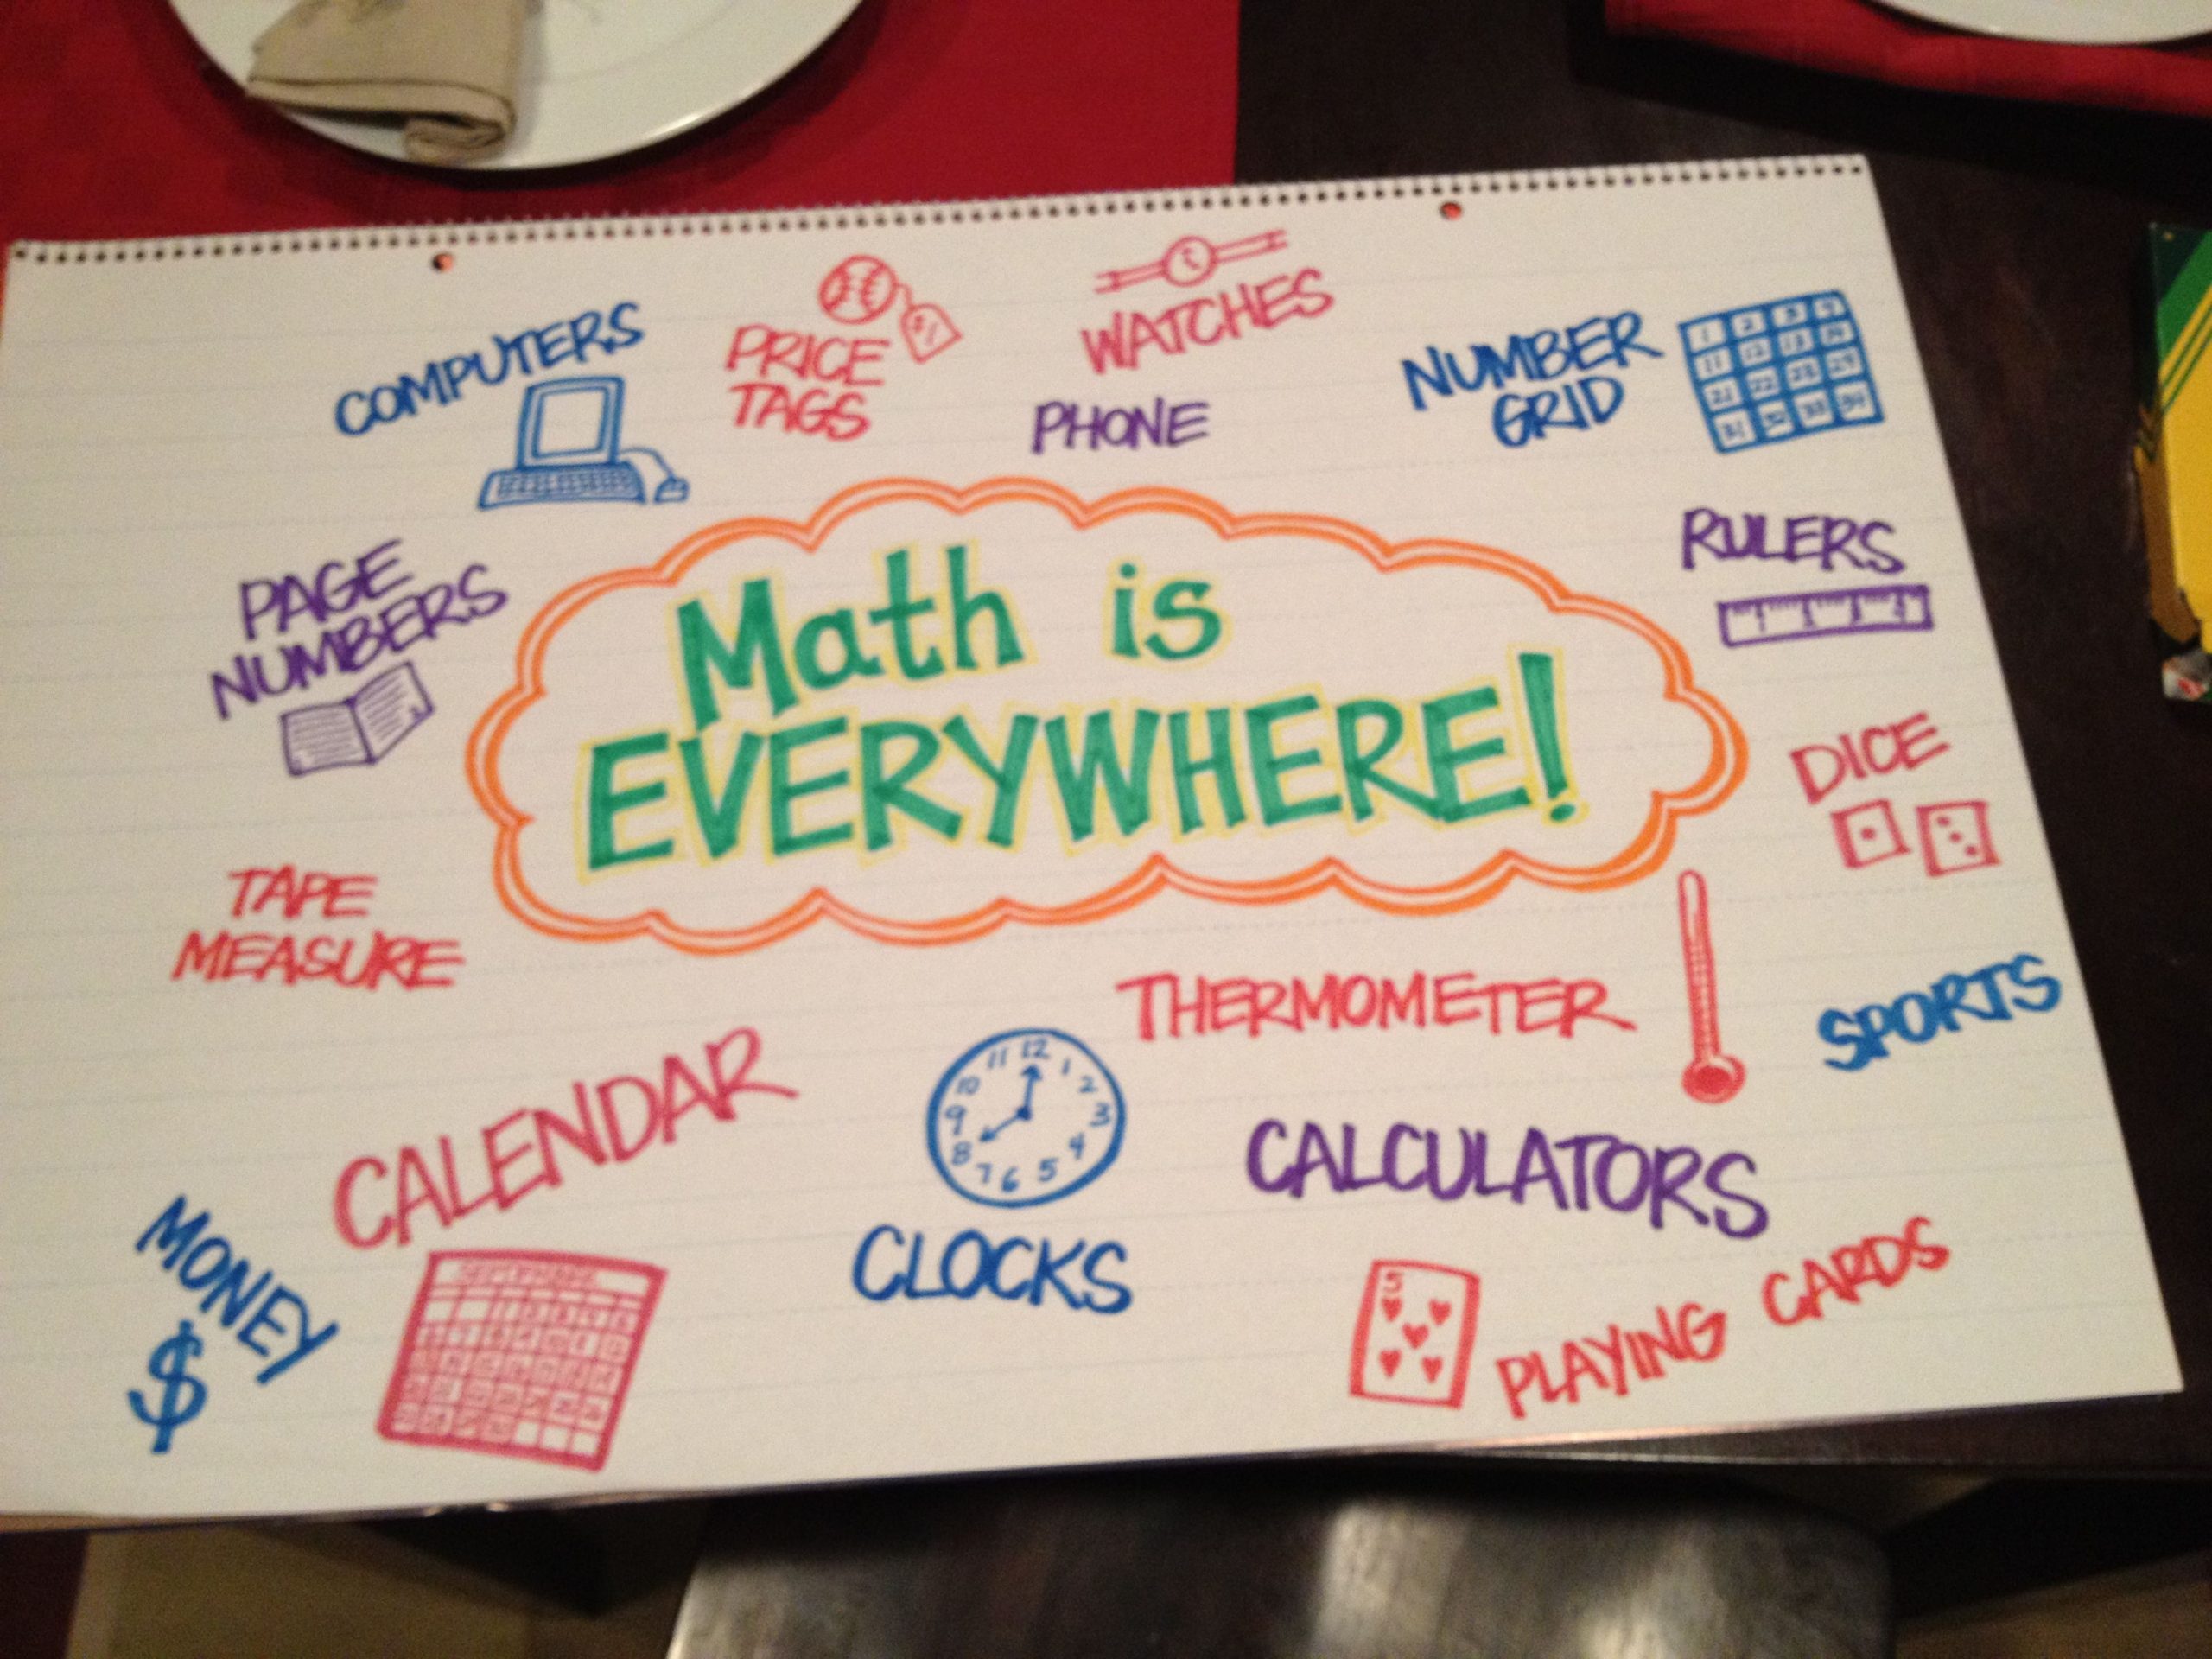 COMPUTERS
PRICE
TAGS
$1
WATCHES
PHONE
NUMBER
GRID
1 2 3 4
11 12 13 14
21 22 23 24
31 32 33 34
PAGE
NUMBERS
Math is
EVERYWHERE!
RULERS
1 2 3 4
DICE
TAPE
MEASURE
THERMOMETER
SPORTS
CALENDAR
SEPTEMBER
11 12 1
10 2
9 3
8 4
7 6 5
CLOCKS
CALCULATORS
MONEY
$
5
PLAYING CARDS